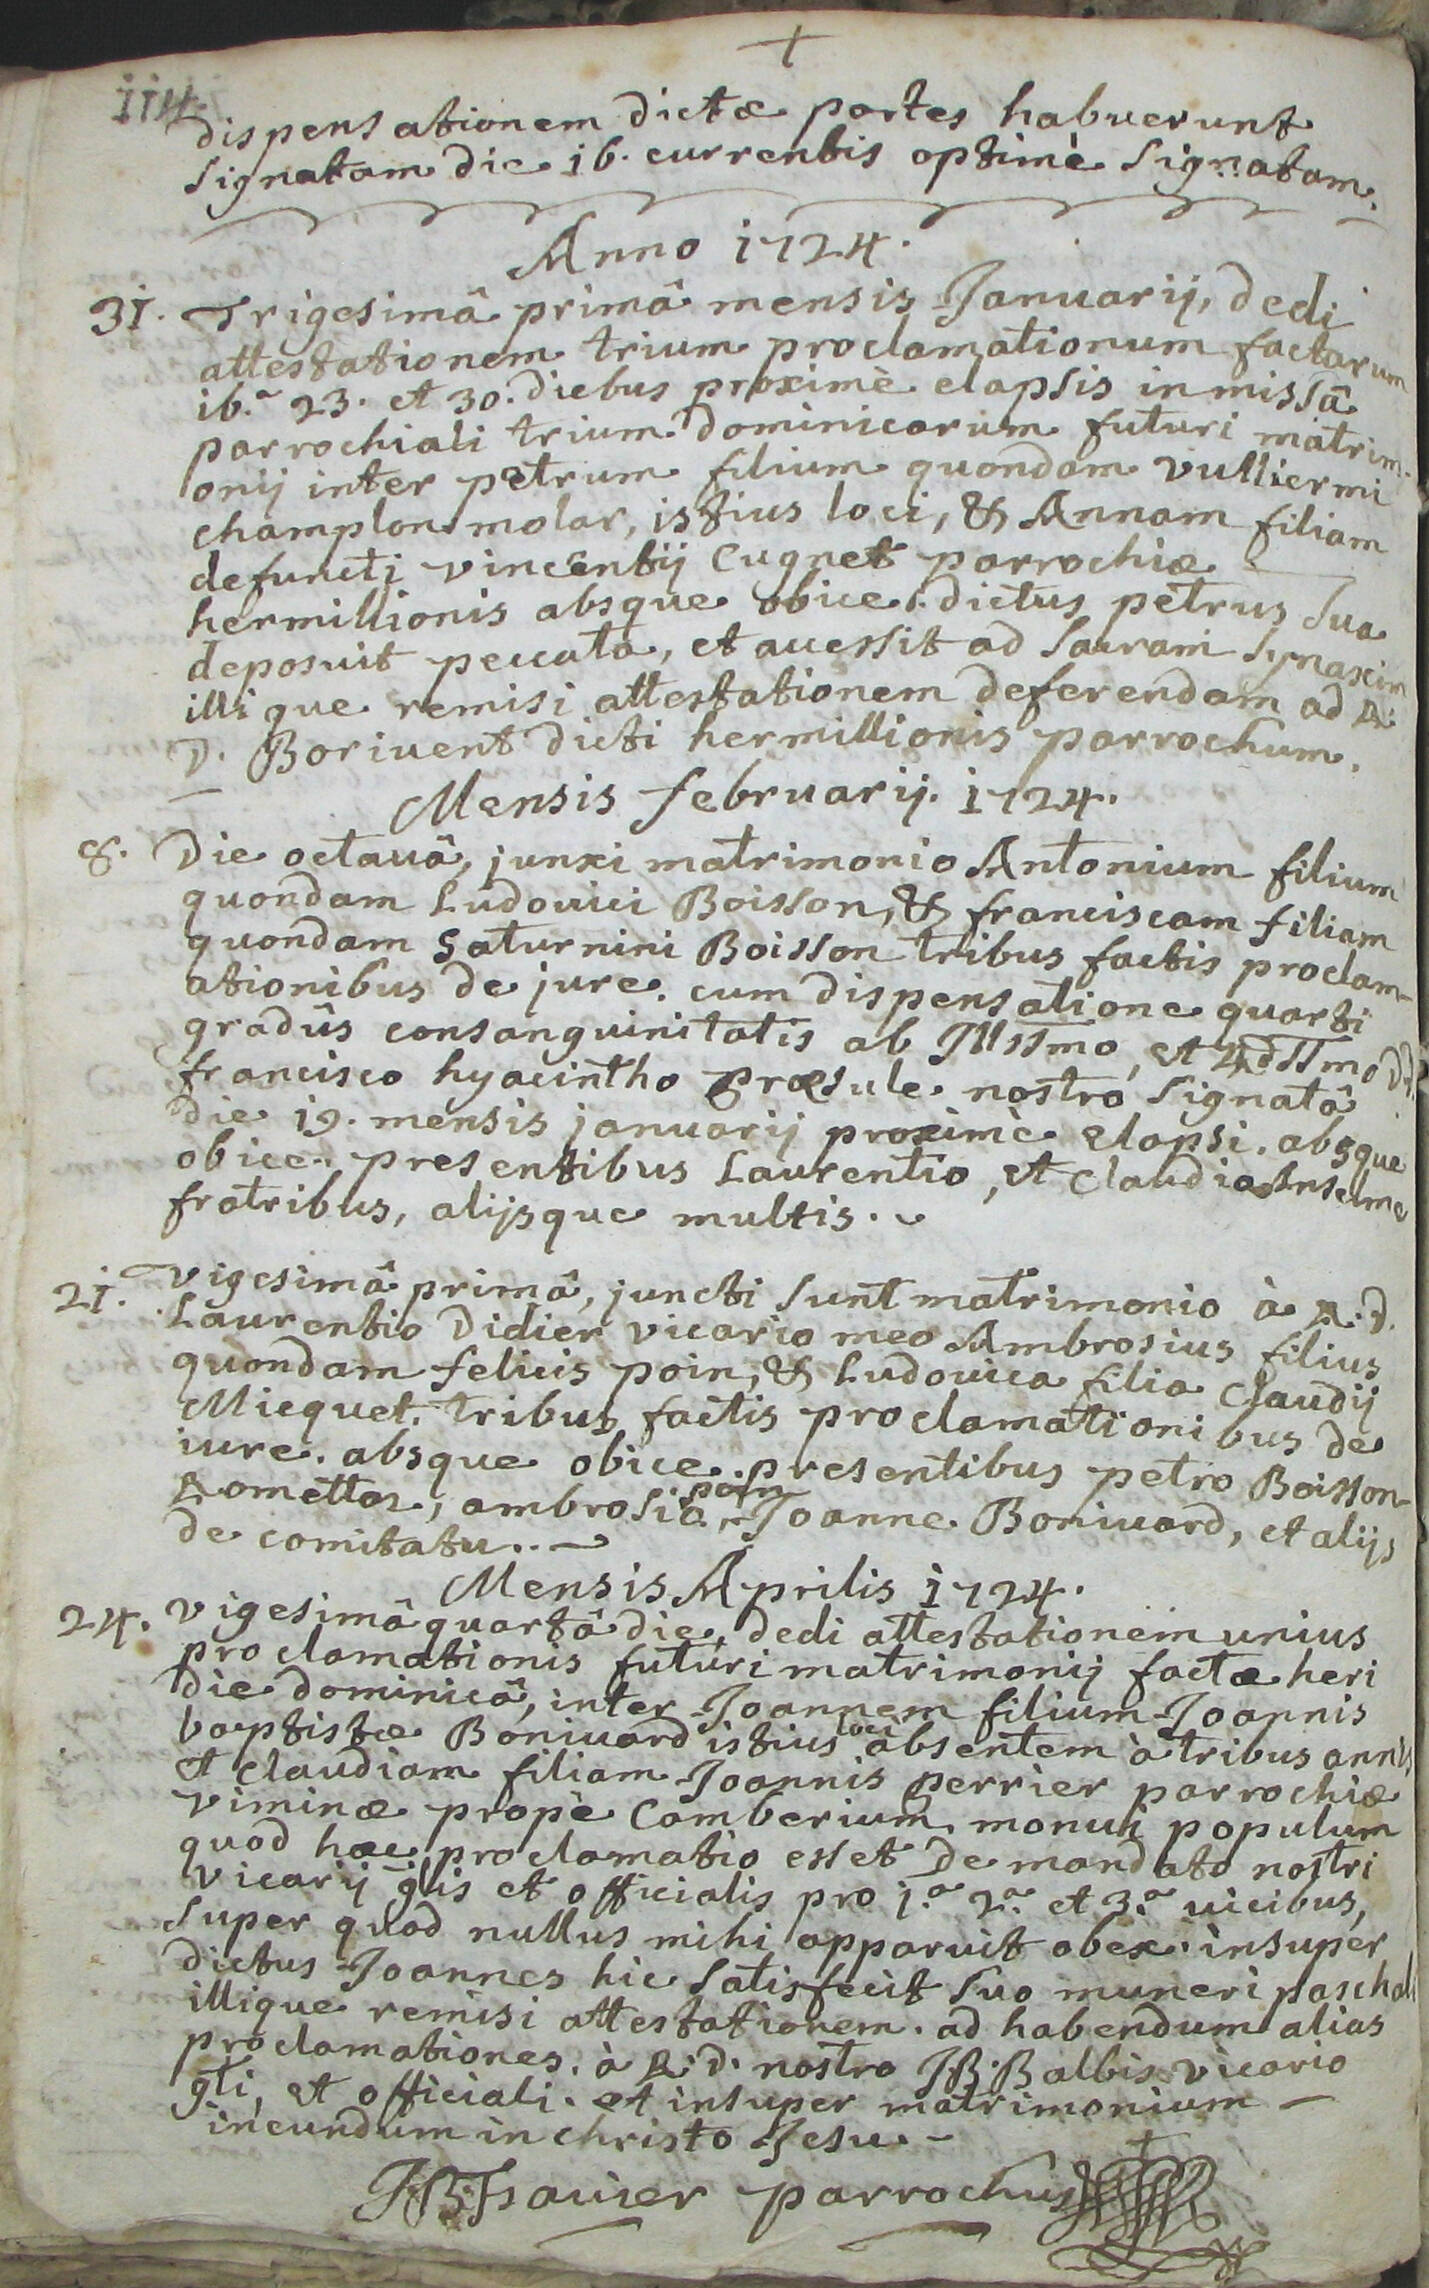 114.
dispensationem dictæ partes habuerunt
signatam die 16. currentis optimè signatam.
Anno 1724.
31. Trigesimâ primâ mensis Januarij, dedi
attestationem trium proclamationum factarum
16.a 23. et 30. diebus proximè elapsis in missâ
parrochiali trium dominicarum futuri matrim-
onij inter petrum filium quondam vulliermi
champlon molar, istius loci, & Annam filiam
defuncti vincentij Cugnet parrochiæ
hermillionis absque obice. dictus petrus sua
deposuit peccata, et accessit ad sacram synaxim
illique remisi attestationem deferendam ad R.
D. Borivent dicti hermillionis parrochum.
Mensis februarij. 1724.
8. Die octavâ, junxi matrimonio Antonium filium
quondam Ludovici Boisson, & franciscam filiam
quondam Saturnini Boisson tribus factis proclam-
ationibus de jure. cum dispensatione quarti
gradûs consanguinitatis ab Illssmo, et Rdssmo DD.
francisco hyacintho Præsule nostro signatâ
die 19. mensis januarij proximè elapsi. absque
obice. presentibus Laurentio, et Claudio Anselme
fratribus, alijsque multis.
21. vigesimâ primâ, juncti sunt matrimonio à R.D.
Laurentio Didier vicario meo Ambrosius filius
quondam felicis poin, & Ludovica filia Claudij
Micquet. tribus factis proclamationibus de
iure. absque obice. presentibus petro Boisson-
Romettaz, ambrosio poin Joanne Bonivard, et alijs
de comitatu..
Mensis Aprilis 1724.
24. vigesimâ quartâ die, dedi attestationem unius
proclamationis futuri matrimonij factæ heri
die dominicâ, inter Joannem filium Joannis
baptistæ Bonivard istius loci absentem à tribus annis,
et claudiam filiam Joannis perrier parrochiæ
viminæ propè Camberium, monui populum
quod hæc proclamatio esset de mandato nostri
vicarij glis et officialis pro 1.a 2.a et 3.a vicibus,
super quod nullus mihi apparuit obex. insuper
dictus Joannes hic satisfecit suo muneri paschali
illique remisi attestationem. ad habendum alias
proclamationes. à R.D. nostro JB. Balbis vicario
gli, et officiali. et insuper matrimonium
ineundum in christo Jesu.
JB Tsavier parrochus